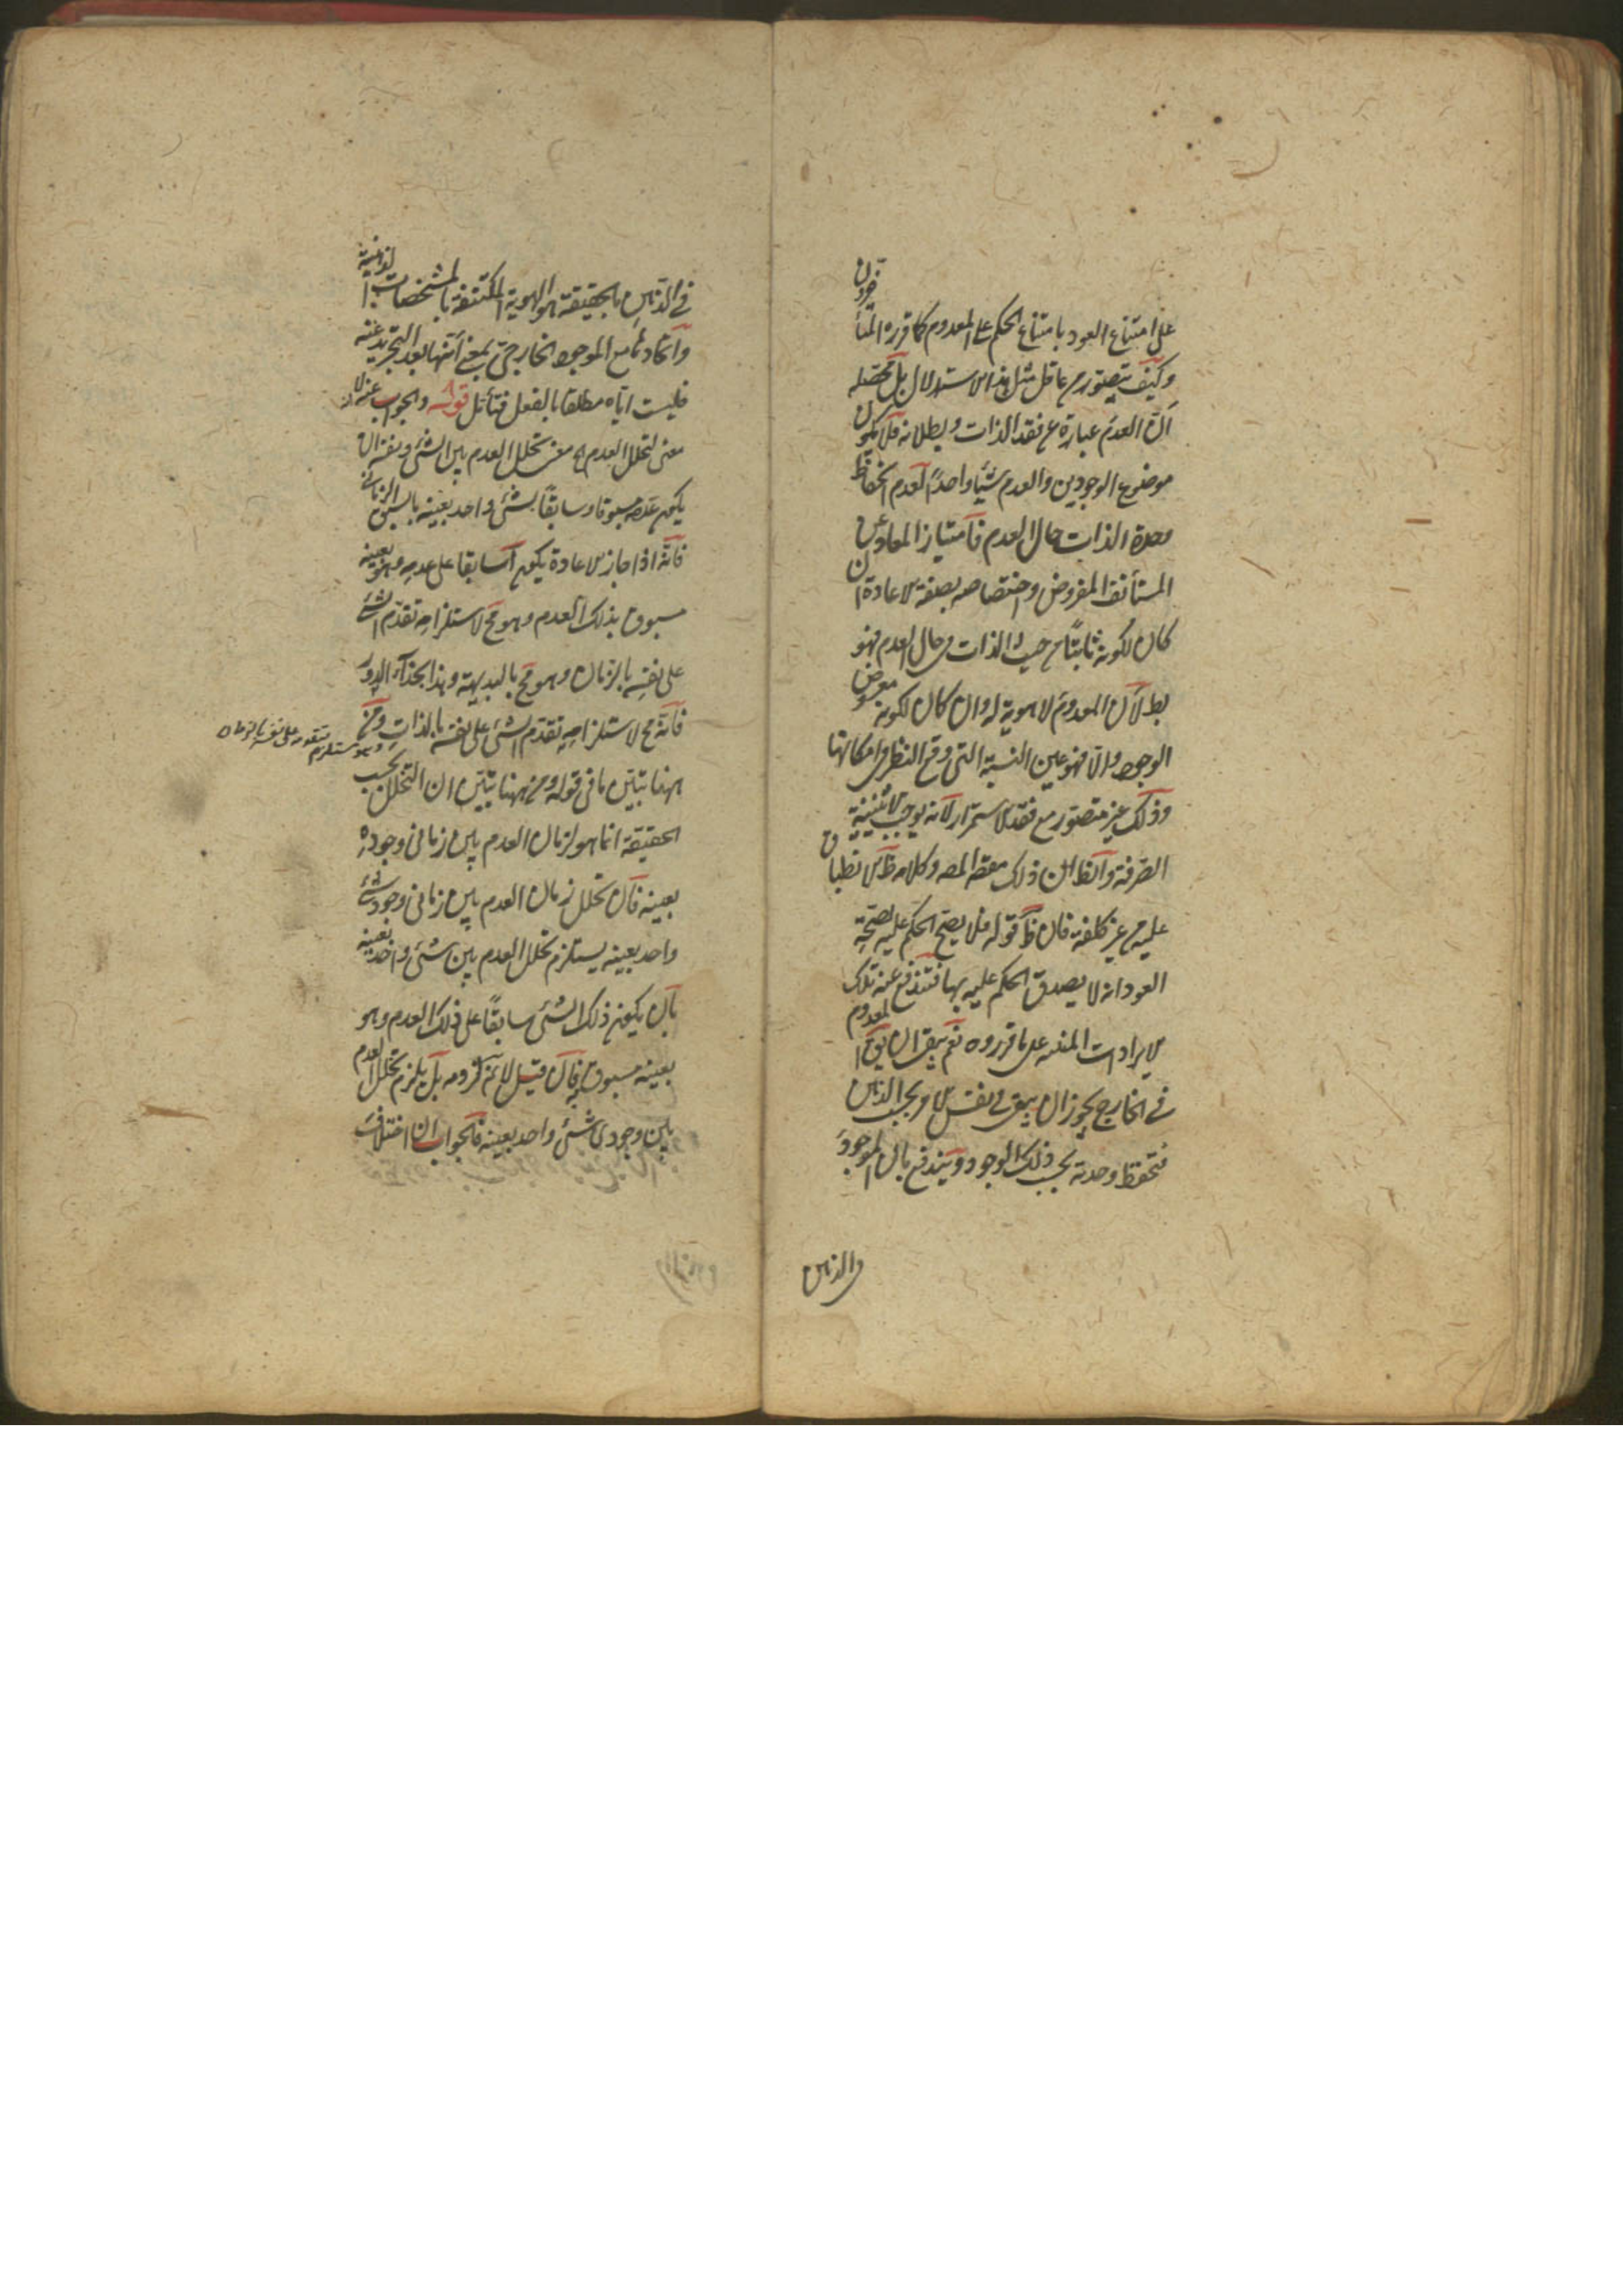 على امتناع العود بامتناع الحكم على المعدوم كما قرره المتأخرون
وكيف يتصور من عاقل مثل هذا الاستدلال بل محصله
ان العدم عبارة عن فقد الذات وبطلانه فلا يكون
موضوع الوجودين والعدم شيئا واحدا لعدم انحفاظ
وحدة الذات حال العدم فامتياز المعاد عن
المستأنف المفروض واختصاصه بصفة الاعادة ان
كان لكونه ثابتا من حيث الذات في حال العدم فهو
بط لان المعدوم لا هوية له وان كان لكونه معروض
الوجود والا فهو عين النسبة التي وقع النظر في امكانها
وذلك غير متصور مع فقد الاستمرار لانه يوجب الاثنينية
الصرفة والظ ان ذلك مقصد المص وكلامه ظ الانطباق
عليه من غير كلفة فان ظ قوله فلا يصح الحكم عليه بصحة
العود انه لا يصدق الحكم عليه بها فتندفع عنه تلك
الايرادات المبنية على ما قرروه نعم يبقى ان يق المعدوم
في الخارج يجوز ان يبقى في نفس الامر بحسب الذهن
فتحفظ وحدته بحسب ذلك الوجود ويندفع بان الموجود
في الذهن بالحقيقة هو الهوية المكتنفة بالمشخصات الذهنية
واتحادها مع الموجود الخارجي بمعنى انها بعد التجريد عنه
فليست اياه مطلقا بالفعل فتأمل قوله والجواب عنه لا
معنى لتخلل العدم اه معنى تخلل العدم بين الشئ ونفسه ان
يكون عدمه مسبوقا وسابقا بشئ واحد بعينه بالسبق الزماني
فانه اذا جاز الاعادة يكون آ سابقا على عدمه وهو بعينه
مسبوق بذلك العدم وهو مح لاستلزامه تقدم الشئ
على نفسه بالزمان وهو مح بالبديهة وهذا بحذاء الدور
فانه مح لاستلزامه تقدم الشئ على نفسه بالذات ومن
وهو مستلزم تقدمه على نفسه بالزمان
ههنا تبين ما في قوله ومن ههنا تبين ان التخلل بحسب
الحقيقة انما هو لزمان العدم بين زماني وجوده
بعينه فان تخلل زمان العدم بين زماني وجود شئ
واحد بعينه يستلزم تخلل العدم بين شئ واحد بعينه
بان يكون ذلك الشئ سابقا على ذلك العدم وهو
بعينه مسبوق به فان قيل لا نم لزومه بل يلزم تخلل العدم
بين وجودي شئ واحد بعينه فالجواب ان اختلاف
في الذهن